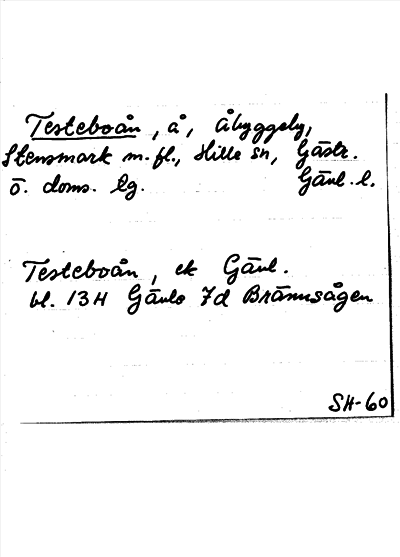 Testeboån, å, Åbyggeby,
Stensmark m.fl., Hille sn, Gästr.
ö. doms. lg. Gävl. l.
Testeboån, ek Gävl.
bl. 13H Gävle 7d Brännsågen
SH-60